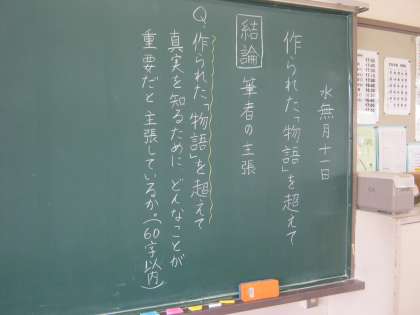 水無月十一日
作られた「物語」を超えて
結論 筆者の主張
Q 作られた「物語」を超えて
真実を知るために どんなことが
重要だと主張しているか。(60字以内)